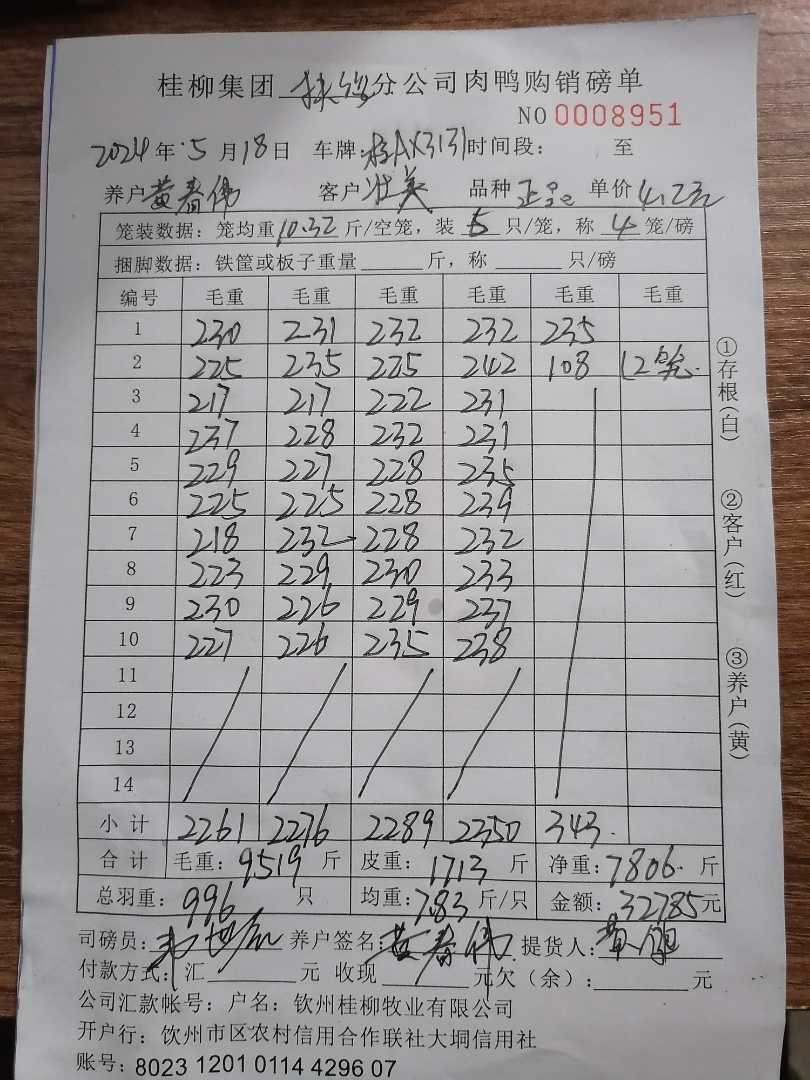 桂柳集团 分公司肉鸭购销磅单
NO 0008951
2024年5月18日 车牌:桂AX3131 时间段: 至
养户 黄春伟 客户 壮美 品种 单价 4.2元
笼装数据:笼均重 10.32 斤/空笼,装 5 只/笼,称 4 笼/磅
捆脚数据:铁筐或板子重量 斤,称 只/磅
编号 毛重 毛重 毛重 毛重 毛重 毛重
1 230 231 232 232 235
2 225 235 225 242 108 (2笼
3 217 217 222 231
4 237 228 232 231
5 229 227 228 235
6 225 225 228 239
7 218 232 228 232
8 223 229 230 233
9 230 226 229 237
10 227 226 235 238
11
12
13
14
小计 2261 2276 2289 2350 343
合计 毛重:9519 斤 皮重:1713 斤 净重:7806 斤
总羽重:996 只 均重:7.83 斤/只 金额:32785元
司磅员: 养户签名:黄春伟 提货人:
付款方式:汇 元 收现 元欠(余): 元
公司汇款帐号:户名:钦州桂柳牧业有限公司
开户行:饮州市区农村信用合作联社大垌信用社
账号:8023 1201 0114 4296 07
①存根(白)
②客户(红)
③养户(黄)